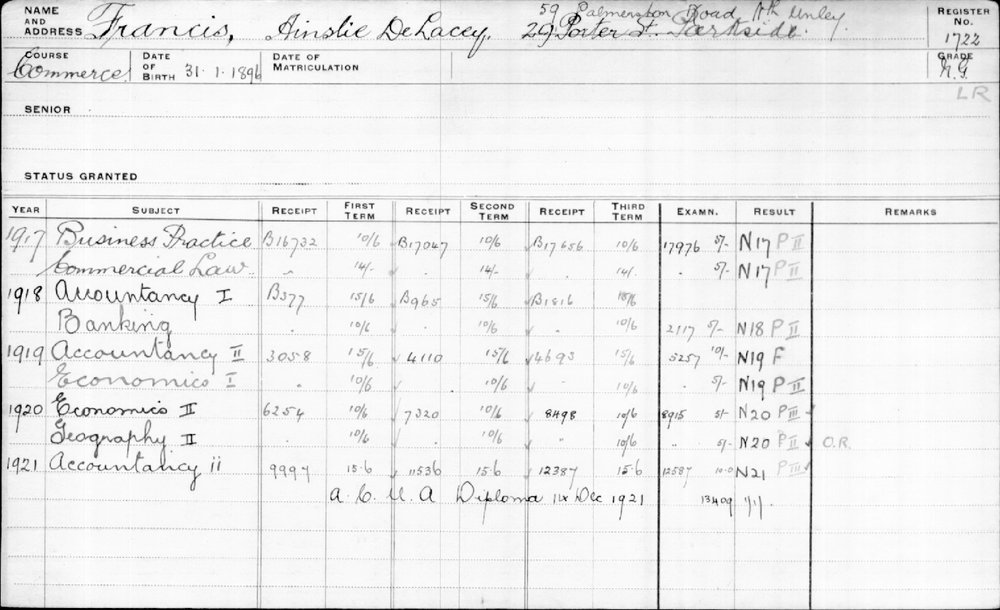 59 Palmerston Road Nth Unley
NAME AND ADDRESS Francis, Ainslie DeLacey. 29 Porter St. Parkside. REGISTER No. 1722
COURSE Commerce DATE OF BIRTH 31.1.1896 DATE OF MATRICULATION GRADE N.G.
LR
SENIOR
STATUS GRANTED
YEAR SUBJECT RECEIPT FIRST TERM RECEIPT SECOND TERM RECEIPT THIRD TERM EXAMN. RESULT REMARKS
1917 Business Practice B16732 10/6 B17047 10/6 B17656 10/6 17976 5/- N17 P II
Commercial Law " 14/- " 14/- " 14/- " 5/- N17 P II
1918 Accountancy I B377 15/6 B965 15/6 B1816 15/6
Banking " 10/6 " 10/6 " 10/6 2117 5/- N18 P II
1919 Accountancy II 3058 15/6 4110 15/6 4693 15/6 5257 10/- N19 F
Economics I " 10/6 " 10/6 " 10/6 " 5/- N19 P II
1920 Economics II 6254 10/6 7320 10/6 8498 10/6 8915 5/- N20 P III
Geography II " 10/6 " 10/6 " 10/6 " 5/- N20 P II O.R.
1921 Accountancy ii 9997 15.6 11536 15.6 12387 15.6 12587 10.0 N21 P III
A.C.U.A Diploma Dec 1921 13409